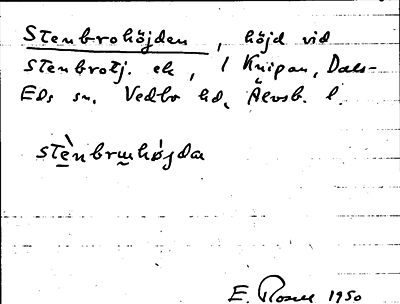 Stenbrohöjden, höjd vid
Stenbrotj. ek, 1 Knipan, Dals-
Eds sn. Vedbo hd, Älvsb. l.
stènbrɯhöjda
E. Rosell 1950